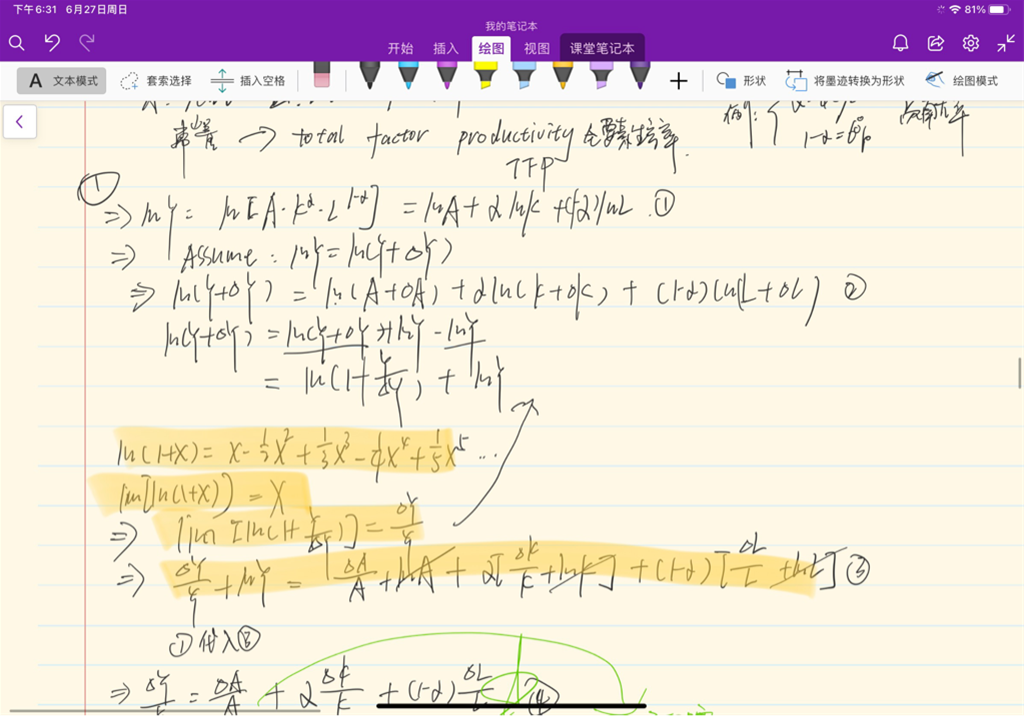 下午6:31 6月27日周日
81%
我的笔记本
开始 插入 绘图 视图 课堂笔记本
A 文本模式 套索选择 插入空格 形状 将墨迹转换为形状 绘图模式
→ total factor productivity 全要素生产率
1-α=60%
TFP
①
⇒ lnY = ln[A·K^α·L^(1-α)] = lnA + αlnK + (1-α)lnL ①
⇒ Assume: lnY = ln(Y+ΔY)
⇒ ln(Y+ΔY) = ln(A+ΔA) + αln(K+ΔK) + (1-α)ln(L+ΔL) ②
ln(Y+ΔY) = ln(Y+ΔY) + lnY - lnY
= ln(1+Y/ΔY) + lnY
ln(1+X) = X - 1/2X² + 1/3X³ - 1/4X⁴ + 1/5X⁵ ...
lim[ln(1+X)] = X
⇒ lim[ln(1+Y/ΔY)] = ΔY/Y
⇒ ΔY/Y + lnY = ΔA/A + lnA + α[ΔK/K + lnK] + (1-α)[ΔL/L + lnL] ③
①代入③
⇒ ΔY/Y = ΔA/A + αΔK/K + (1-α)ΔL/L ④